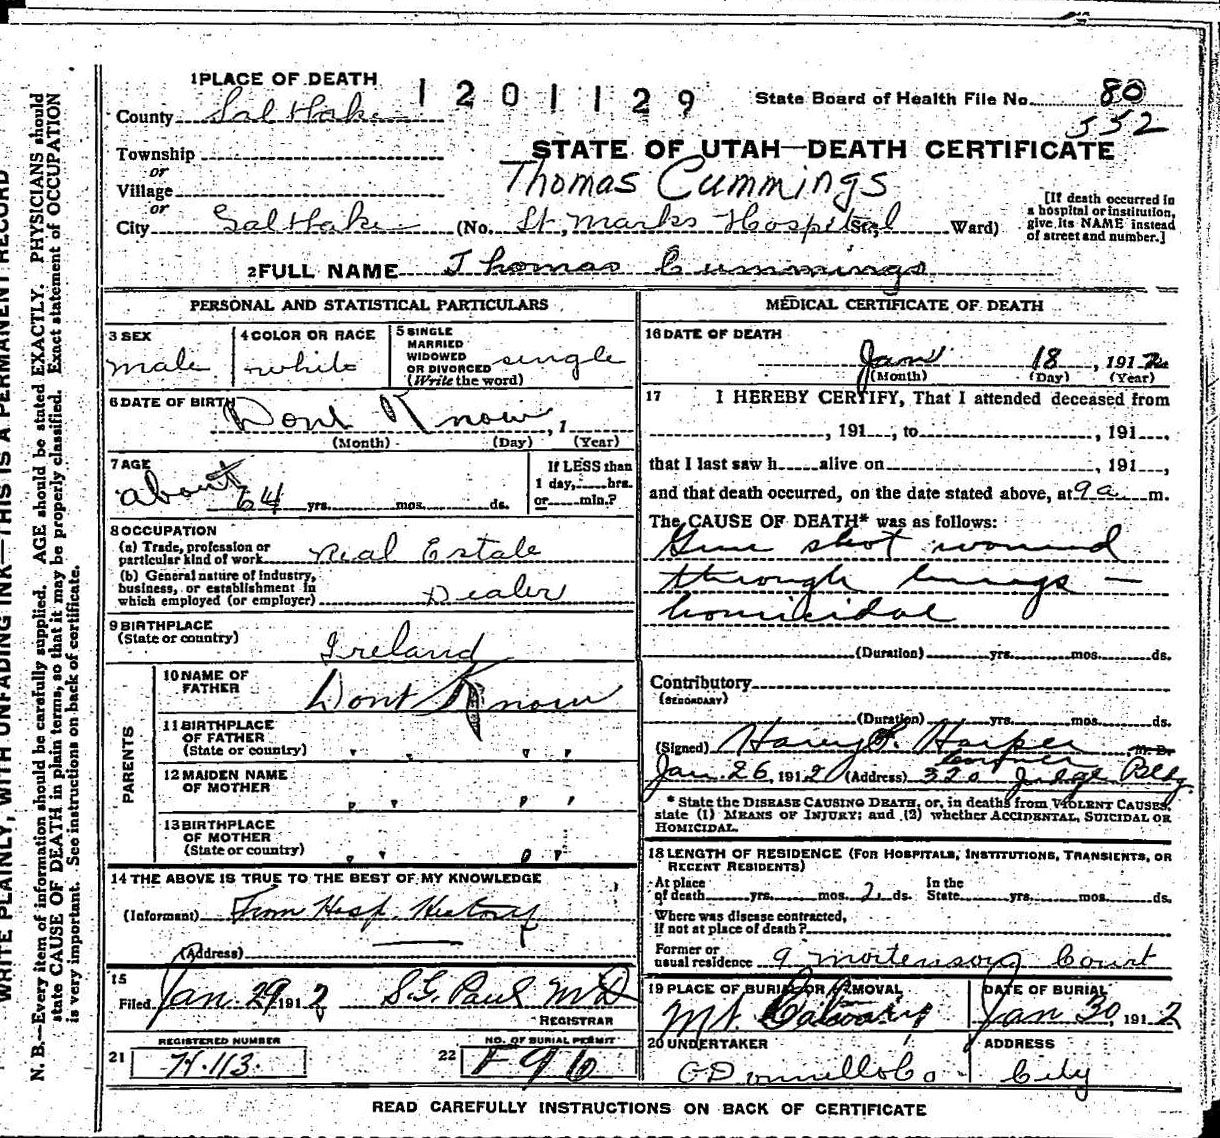 1 PLACE OF DEATH
1201129
State Board of Health File No. 80
552
County Salt Lake
STATE OF UTAH—DEATH CERTIFICATE
Township
or
Thomas Cummings
Village
or
City Salt Lake (No. St, Marks Hospital St; Ward)
[If death occurred in
a hospital or institution,
give its NAME instead
of street and number.]
2 FULL NAME Thomas Cummings
PERSONAL AND STATISTICAL PARTICULARS
3 SEX
male
4 COLOR OR RACE
white
5 SINGLE
MARRIED
WIDOWED
OR DIVORCED
(Write the word)
single
6 DATE OF BIRTH
Dont Know, 1
(Month) (Day) (Year)
7 AGE
about 64 yrs. mos. ds.
If LESS than
1 day, hrs.
or min.?
8 OCCUPATION
(a) Trade, profession or
particular kind of work Real Estate
(b) General nature of industry,
business, or establishment in
which employed (or employer) Dealer
9 BIRTHPLACE
(State or country)
Ireland
PARENTS
10 NAME OF
FATHER
Dont Know
11 BIRTHPLACE
OF FATHER
(State or country) " "
12 MAIDEN NAME
OF MOTHER " "
13 BIRTHPLACE
OF MOTHER
(State or country) " "
14 THE ABOVE IS TRUE TO THE BEST OF MY KNOWLEDGE
(Informant) From Hosp. History
(Address)
15
Filed Jan. 29 1912 S.G. Paul MD
REGISTRAR
21 REGISTERED NUMBER
H.113.
22 NO. OF BURIAL PERMIT
F 96
MEDICAL CERTIFICATE OF DEATH
16 DATE OF DEATH
Jan 18, 1912
(Month) (Day) (Year)
17 I HEREBY CERTIFY, That I attended deceased from
, 191 , to , 191 ,
that I last saw h alive on , 191 ,
and that death occurred, on the date stated above, at 9 a m.
The CAUSE OF DEATH* was as follows:
Gun shot wound
through lungs —
homicidal
(Duration) yrs. mos. ds.
Contributory
(SECONDARY)
(Duration) yrs. mos. ds.
(Signed) Harry S. Harper, M. D.
Jan. 26, 1912 (Address) 320 Judge Bldg
* State the DISEASE CAUSING DEATH, or, in deaths from VIOLENT CAUSES,
state (1) MEANS OF INJURY; and (2) whether ACCIDENTAL, SUICIDAL OR
HOMICIDAL.
18 LENGTH OF RESIDENCE (FOR HOSPITALS, INSTITUTIONS, TRANSIENTS, OR
RECENT RESIDENTS)
At place
of death yrs. mos. 2 ds.
In the
State yrs. mos. ds.
Where was disease contracted,
if not at place of death?
Former or
usual residence 9 Mortenson Court
19 PLACE OF BURIAL OR REMOVAL
Mt. Calvary
DATE OF BURIAL
Jan 30, 1912
20 UNDERTAKER
O Donnell & Co
ADDRESS
City
READ CAREFULLY INSTRUCTIONS ON BACK OF CERTIFICATE
WRITE PLAINLY, WITH UNFADING INK—THIS IS A PERMANENT RECORD
N. B.—Every item of information should be carefully supplied. AGE should be stated EXACTLY. PHYSICIANS should
state CAUSE OF DEATH in plain terms, so that it may be properly classified. Exact statement of OCCUPATION
is very important. See instructions on back of certificate.